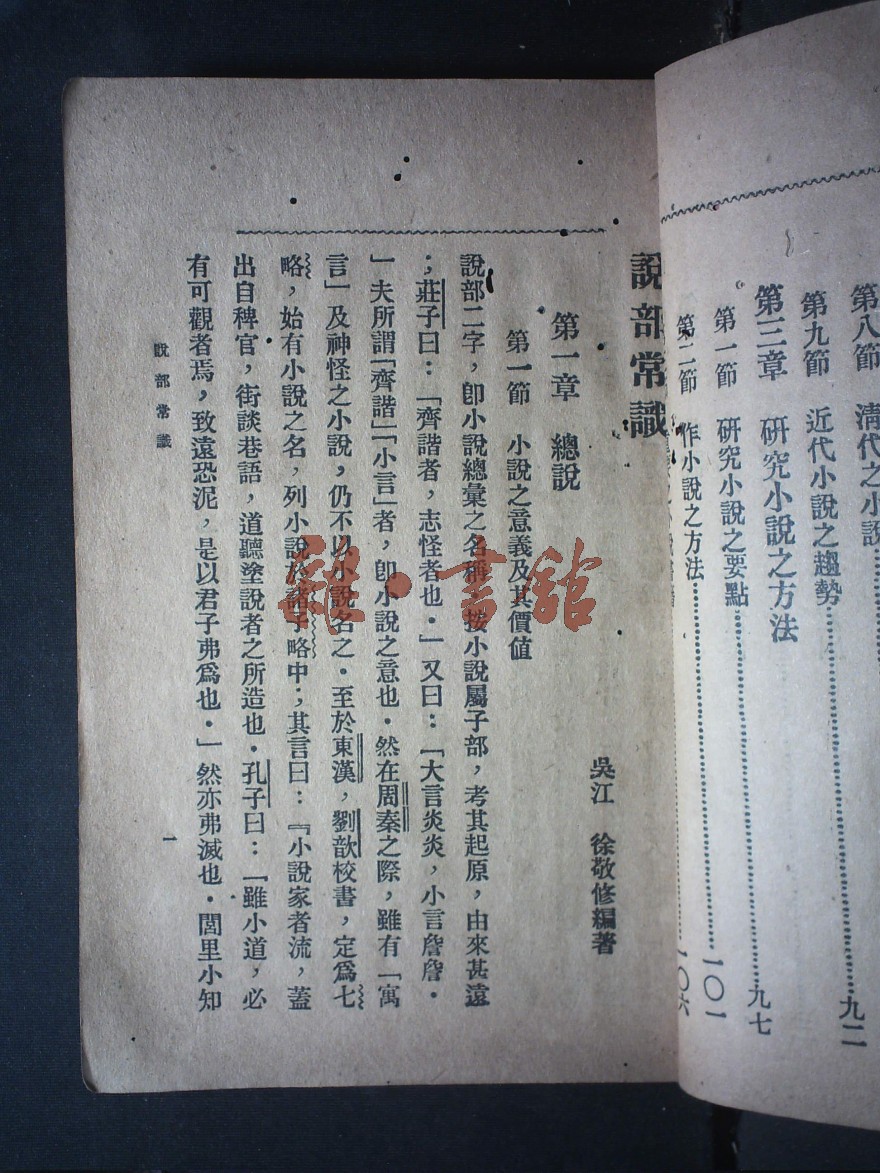 第八節　清代之小說……九二
第九節　近代小說之趨勢……九七
第三章　研究小說之方法
第一節　研究小說之要點……一〇一
第二節　作小說之方法……一〇六
說部常識
吳江　徐敬修編著
第一章　總說
第一節　小說之意義及其價值
說部二字，卽小說總彙之名稱，按小說屬子部，考其起原，由來甚遠
；莊子曰：「齊諧者，志怪者也．」又曰：「大言炎炎，小言詹詹．
」夫所謂「齊諧」「小言」者，卽小說之意也．然在周秦之際，雖有「寓
言」及神怪之小說，仍不以小說名之．至於東漢，劉歆校書，定爲七
略，始有小說之名，列小說於諸子略中；其言曰：『小說家者流，蓋
出自稗官，街談巷語，道聽塗說者之所造也．孔子曰：「雖小道，必
有可觀者焉，致遠恐泥，是以君子弗爲也．」然亦弗滅也．閭里小知
說部常識
一
龍·書館